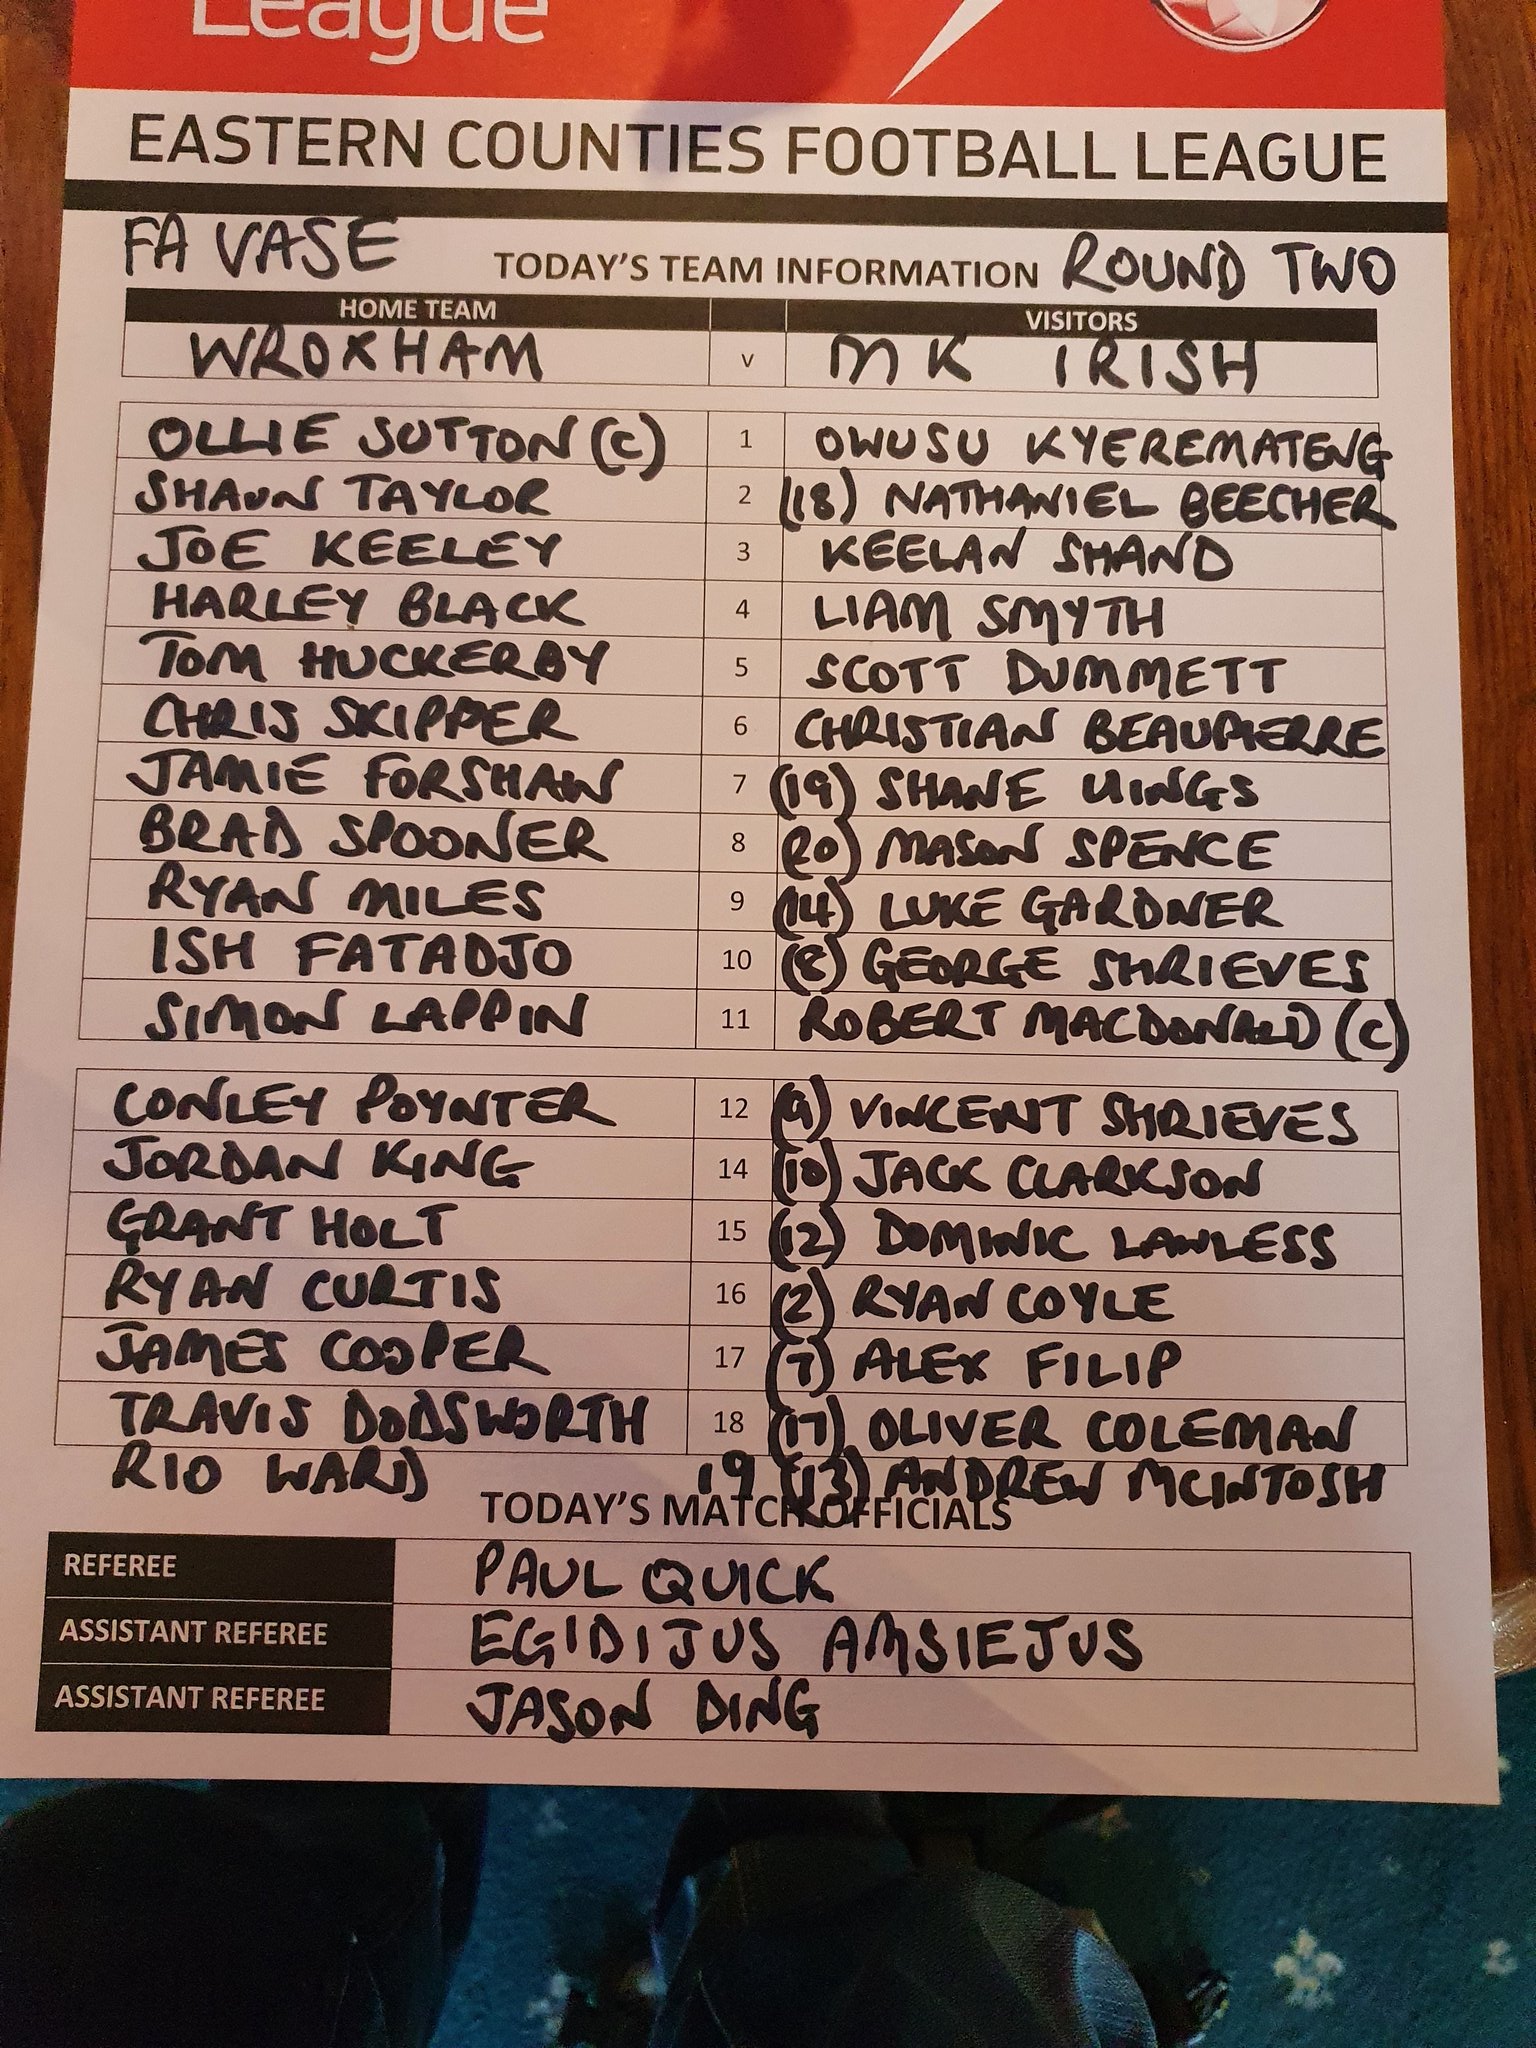 League
EASTERN COUNTIES FOOTBALL LEAGUE
FA VASE TODAY'S TEAM INFORMATION ROUND TWO
HOME TEAM VISITORS
WROXHAM v MK IRISH
OLLIE SUTTON (C) 1 OWUSU KYEREMATENG
SHAUN TAYLOR 2 (18) NATHANIEL BEECHER
JOE KEELEY 3 KEELAN SHAND
HARLEY BLACK 4 LIAM SMYTH
TOM HUCKERBY 5 SCOTT DUMMETT
CHRIS SKIPPER 6 CHRISTIAN BEAUPIERRE
JAMIE FORSHAW 7 (19) SHANE UINGS
BRAD SPOONER 8 (20) MASON SPENCE
RYAN MILES 9 (14) LUKE GARDNER
ISH FATADJO 10 (8) GEORGE SHRIEVES
SIMON LAPPIN 11 ROBERT MACDONALD (C)
CONLEY POYNTER 12 (9) VINCENT SHRIEVES
JORDAN KING 14 (10) JACK CLARKSON
GRANT HOLT 15 (12) DOMINIC LAWLESS
RYAN CURTIS 16 (2) RYAN COYLE
JAMES COOPER 17 (7) ALEX FILIP
TRAVIS DODSWORTH 18 (17) OLIVER COLEMAN
RIO WARD 19 (13) ANDREW MCINTOSH
TODAY'S MATCH OFFICIALS
REFEREE PAUL QUICK
ASSISTANT REFEREE EGIDIJUS AMSIEJUS
ASSISTANT REFEREE JASON DING